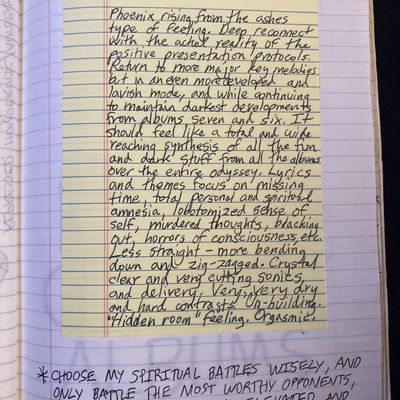 Phoenix rising from the ashes
type of feeling. Deep reconnect
with the actual reality of the
positive presentation protocols.
Return to more major key melodies
but in an even more developed and
lavish mode, and while continuing
to maintain darkest developments
from albums seven and six. It
should feel like a total and wide
reaching synthesis of all the fun
and dark stuff from all the albums
over the entire odyssey. Lyrics
and themes focus on missing
time, total personal and spiritual
amnesia, lobotomized sense of
self, murdered thoughts, blacking
out, horrors of consciousness, etc.
Less straight - more bending
down and zig-zagged. Crystal
clear and very cutting sonics
and delivery. Very, very dry
and hard contrasts. Un-building.
"Hidden room" feeling. Orgasmic.
* CHOOSE MY SPIRITUAL BATTLES WISELY, AND
ONLY BATTLE THE MOST WORTHY OPPONENTS,
ELEVATED AND